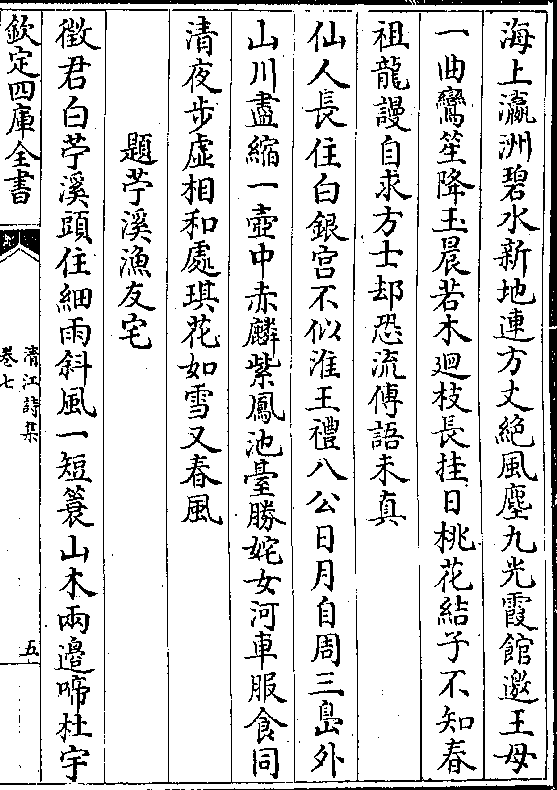 海上瀛洲碧水新地連方丈絶風塵九光霞館邀王母
一曲鸞笙降玉晨若木廻枝長挂日桃花結子不知春
祖龍謾自求方士却恐流傳語未真
仙人長住白銀宫不似淮王禮八公日月自周三島外
山川盡縮一壺中赤麟紫鳳池臺勝姹女河車服食同
清夜步虚相和處琪花如雪又春風
題苧溪漁友宅
徵君白苧溪頭住細雨斜風一短蓑山木兩邉啼杜宇
欽定四庫全書
清江詩集
卷七
五